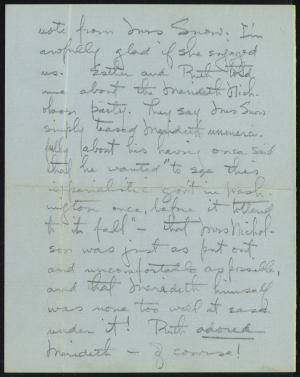 note from Mrs Snow. I'm
awfully glad if she enjoyed
us. Esther and Ruth told
me about the Meredith Nich-
olson party. They say Mrs Snow
simply teased Meredith unmerci-
fully about his having once said
that he wanted "to see this
imperialistic gov't in Wash-
ington once, before it tottered
to its fall" – that Mrs Nichol-
son was just as put out
and uncomfortable as possible,
and that Meredith himself
was none too well at ease
under it! Ruth adored
Meredith – of course!